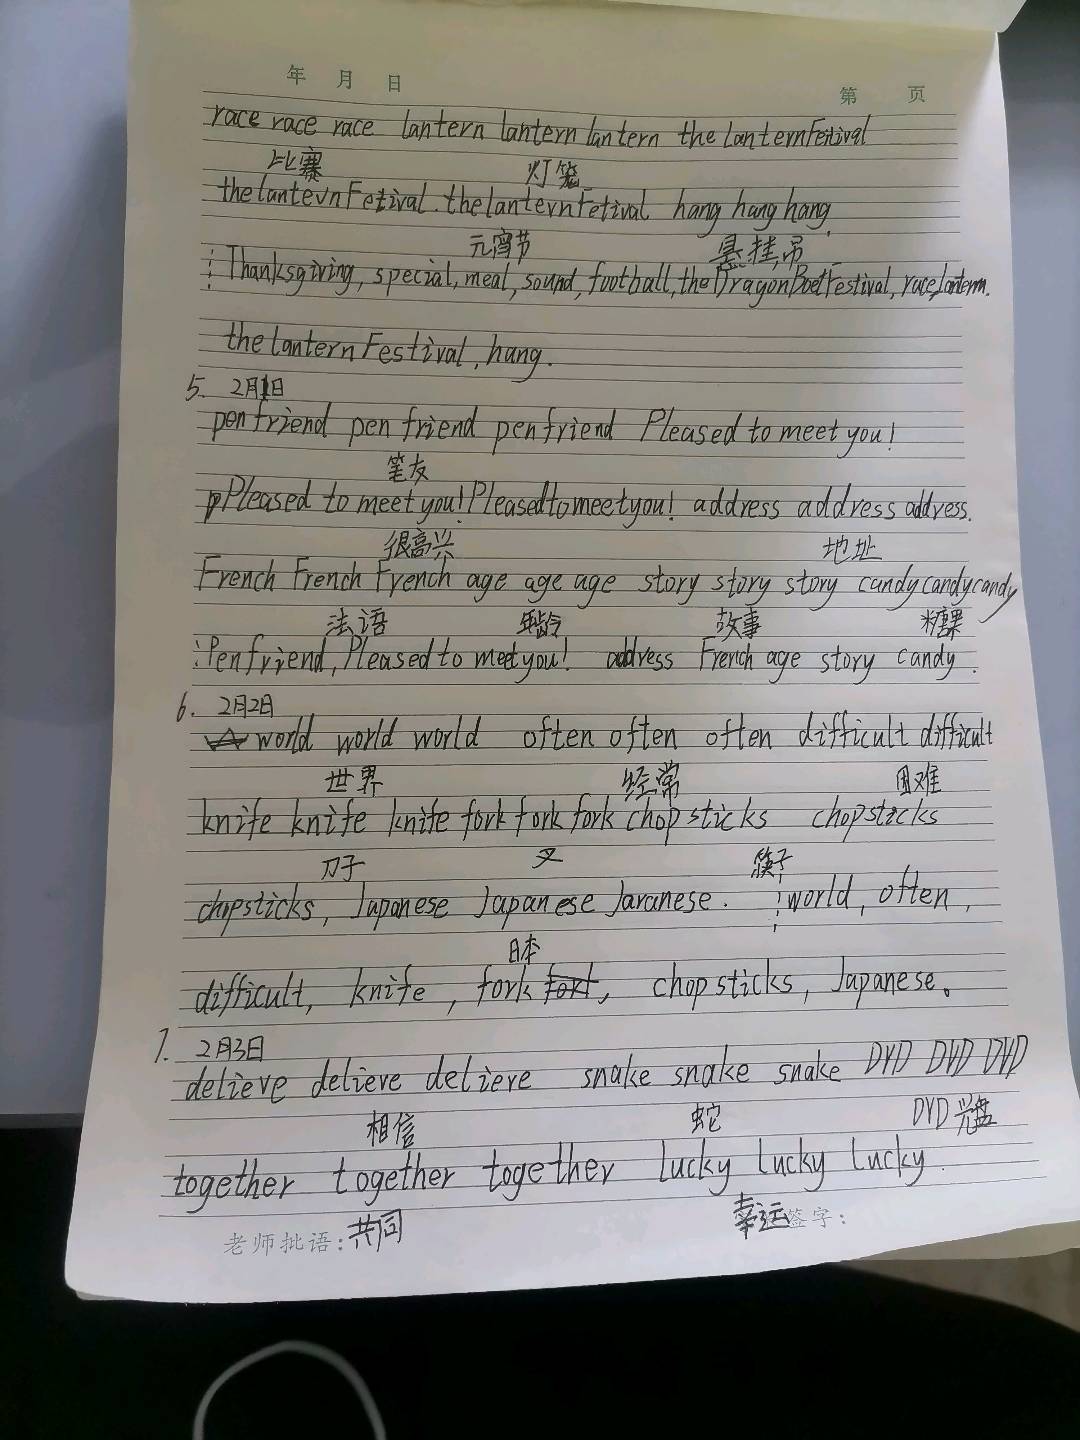 年 月 日 第 页
race race race lantern lantern lantern the lantern Festival
比赛 灯笼
the lantern Fetival. the lantern Fetival hang hang hang.
元宵节 悬挂,吊
Thanksgiving, special, meal, sound, football, the Dragon Boat Festival, race, lantern.
the lantern Festival, hang.
5. 2月1日
pen friend pen friend pen friend Pleased to meet you!
笔友
Pleased to meet you! Pleased to meet you! address address address.
很高兴 地址
French French French age age age story story story candy candy candy
法语 年龄 故事 糖果
Pen friend, Pleased to meet you! address French age story candy.
6. 2月2日
world world world often often often difficult difficult
世界 经常 困难
knife knife knife fork fork fork chopsticks chopsticks
刀子 叉 筷子
chopsticks, Japanese Japanese Javanese. world, often,
日本
difficult, knife, fork, chopsticks, Japanese。
7. 2月3日
delieve delieve delieve snake snake snake DVD DVD DVD
相信 蛇 DVD光盘
together together together lucky lucky lucky.
老师批语: 共同 幸运 签字: